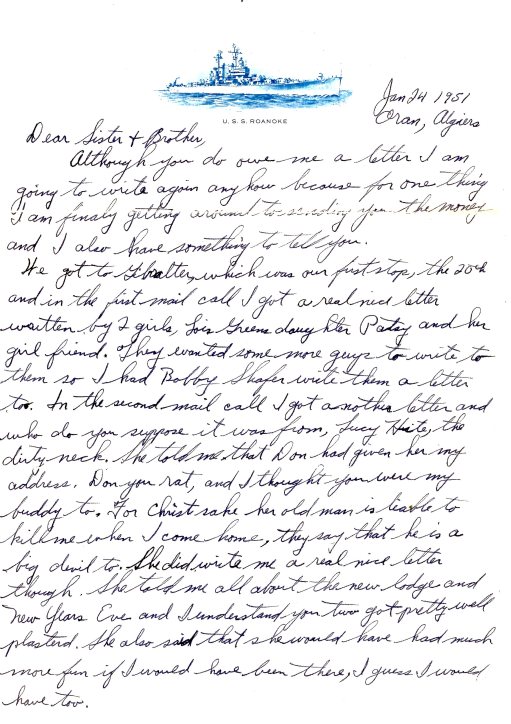 U.S.S. ROANOKE
Jan 24 1951
Oran, Algiers
Dear Sister + Brother,
Although you do owe me a letter I am
going to write again anyhow because for one thing
I am finaly getting around to sending you the money
and I also have something to tell you.
We got to Gibralter, which was our first stop, the 20th
and in the first mail call I got a real nice letter
written by 2 girls, Lois Greens daughter Patsy and her
girl friend. They wanted some more guys to write to
them so I had Bobby Shafer write them a letter
to. In the second mail call I got another letter and
who do you suppose it was from, Lucy Hite, the
dirty neck. She told me that Don had given her my
address. Don you rat, and I thought you were my
buddy to. For Christ sake her old man is liable to
kill me when I come home, they say that he is a
big devil to. She did write me a real nice letter
though. She told me all about the new lodge and
New Years Eve and I understand you two got pretty well
plasterd. She also said that she would have had much
more fun if I would have been there, I guess I would
have too.